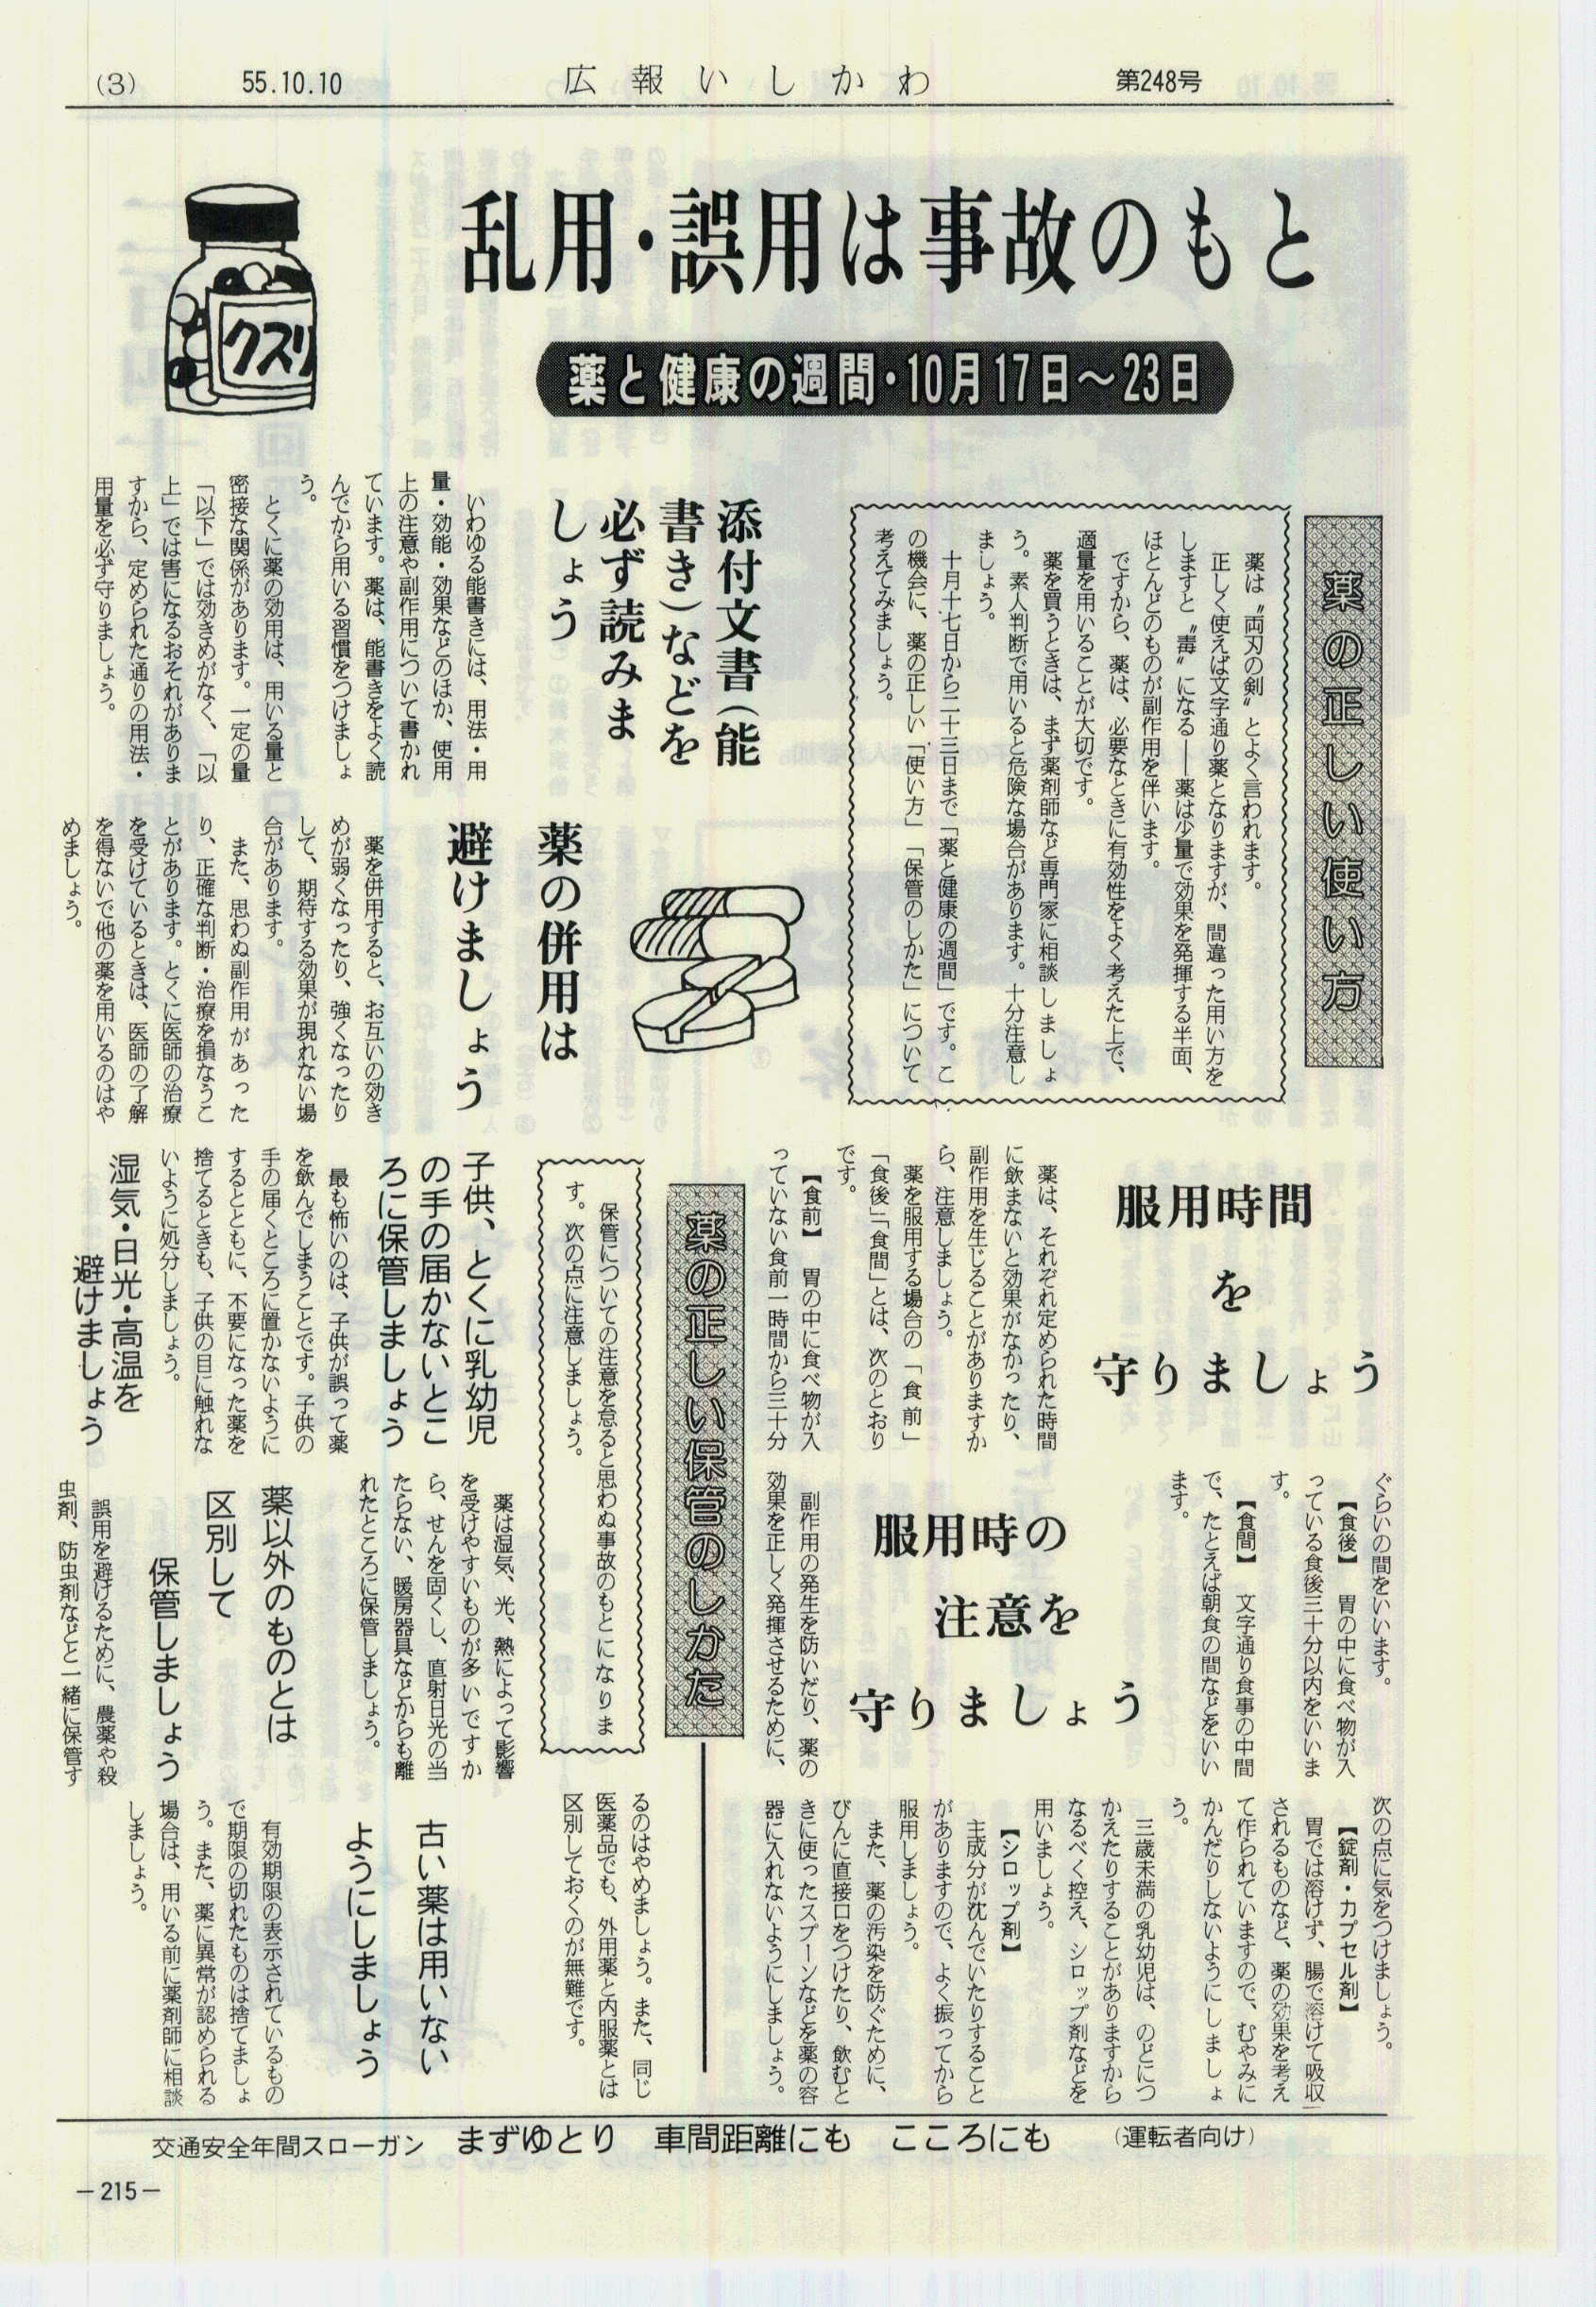 (3)
55.10.10
広報いしかわ
第248号
乱用・誤用は事故のもと
薬と健康の週間・10月17日～23日
クスリ
薬の正しい使い方
薬は〝両刃の剣〟とよく言われます。
正しく使えば文字通り薬となりますが、間違った用い方を
しますと〝毒〟になる――薬は少量で効果を発揮する半面、
ほとんどのものが副作用を伴います。
ですから、薬は、必要なときに有効性をよく考えた上で、
適量を用いることが大切です。
薬を買うときは、まず薬剤師など専門家に相談しましょ
う。素人判断で用いると危険な場合があります。十分注意し
ましょう。
十月十七日から二十三日まで「薬と健康の週間」です。こ
の機会に、薬の正しい「使い方」「保管のしかた」について
考えてみましょう。
添付文書（能
書き）などを
必ず読みま
しょう
いわゆる能書きには、用法・用
量・効能・効果などのほか、使用
上の注意や副作用について書かれ
ています。薬は、能書きをよく読
んでから用いる習慣をつけましょ
う。
とくに薬の効用は、用いる量と
密接な関係があります。一定の量
「以下」では効きめがなく、「以
上」では害になるおそれがありま
すから、定められた通りの用法・
用量を必ず守りましょう。
薬の併用は
避けましょう
薬を併用すると、お互いの効き
めが弱くなったり、強くなったり
して、期待する効果が現れない場
合があります。
また、思わぬ副作用があった
り、正確な判断・治療を損なうこ
とがあります。とくに医師の治療
を受けているときは、医師の了解
を得ないで他の薬を用いるのはや
めましょう。
服用時間
を
守りましょう
薬は、それぞれ定められた時間
に飲まないと効果がなかったり、
副作用を生じることがありますか
ら、注意しましょう。
薬を服用する場合の「食前」
「食後」「食間」とは、次のとおり
です。
【食前】　胃の中に食べ物が入
っていない食前一時間から三十分
ぐらいの間をいいます。
【食後】　胃の中に食べ物が入
っている食後三十分以内をいいま
す。
【食間】　文字通り食事の中間
で、たとえば朝食の間などをいい
ます。
服用時の
注意を
守りましょう
副作用の発生を防いだり、薬の
効果を正しく発揮させるために、
次の点に気をつけましょう。
【錠剤・カプセル剤】
胃では溶けず、腸で溶けて吸収
されるものなど、薬の効果を考え
て作られていますので、むやみに
かんだりしないようにしましょ
う。
三歳未満の乳幼児は、のどにつ
かえたりすることがありますから
なるべく控え、シロップ剤などを
用いましょう。
【シロップ剤】
主成分が沈んでいたりすること
がありますので、よく振ってから
服用しましょう。
また、薬の汚染を防ぐために、
びんに直接口をつけたり、飲むと
きに使ったスプーンなどを薬の容
器に入れないようにしましょう。
薬の正しい保管のしかた
保管についての注意を怠ると思わぬ事故のもとになりま
す。次の点に注意しましょう。
子供、とくに乳幼児
の手の届かないとこ
ろに保管しましょう
最も怖いのは、子供が誤って薬
を飲んでしまうことです。子供の
手の届くところに置かないように
するとともに、不要になった薬を
捨てるときも、子供の目に触れな
いように処分しましょう。
湿気・日光・高温を
避けましょう
薬は湿気、光、熱によって影響
を受けやすいものが多いですか
ら、せんを固くし、直射日光の当
たらない、暖房器具などからも離
れたところに保管しましょう。
薬以外のものとは
区別して
保管しましょう
誤用を避けるために、農薬や殺
虫剤、防虫剤などと一緒に保管す
るのはやめましょう。また、同じ
医薬品でも、外用薬と内服薬とは
区別しておくのが無難です。
古い薬は用いない
ようにしましょう
有効期限の表示されているもの
で期限の切れたものは捨てましょ
う。また、薬に異常が認められる
場合は、用いる前に薬剤師に相談
しましょう。
交通安全年間スローガン　まずゆとり　車間距離にも　こころにも　（運転者向け）
－215－